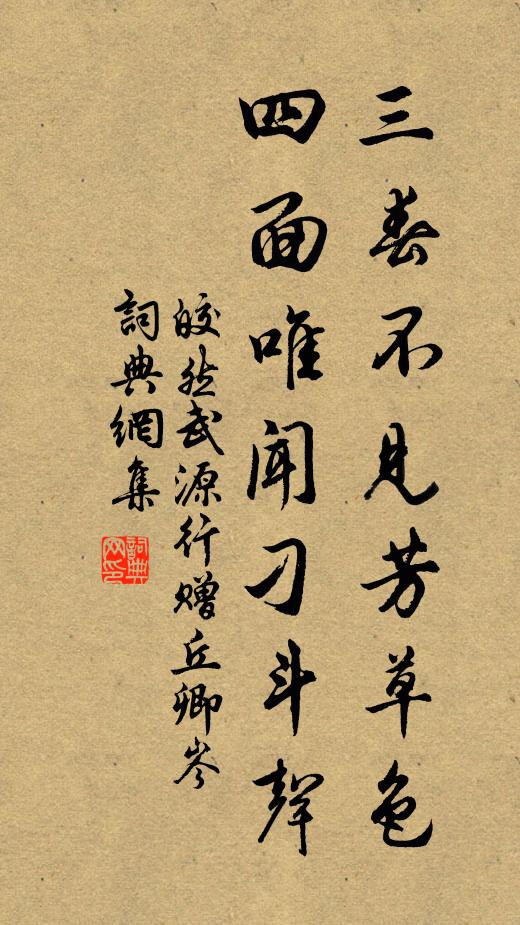 三春不見芳草色
四面唯聞刁斗聲
皎然武源行贈丘卿岑
詞典網集
詞典
网印